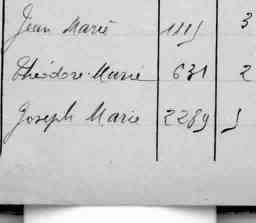 Jean Marie 1115 3
Théodore Marie 631 2
Joseph Marie 2289 5